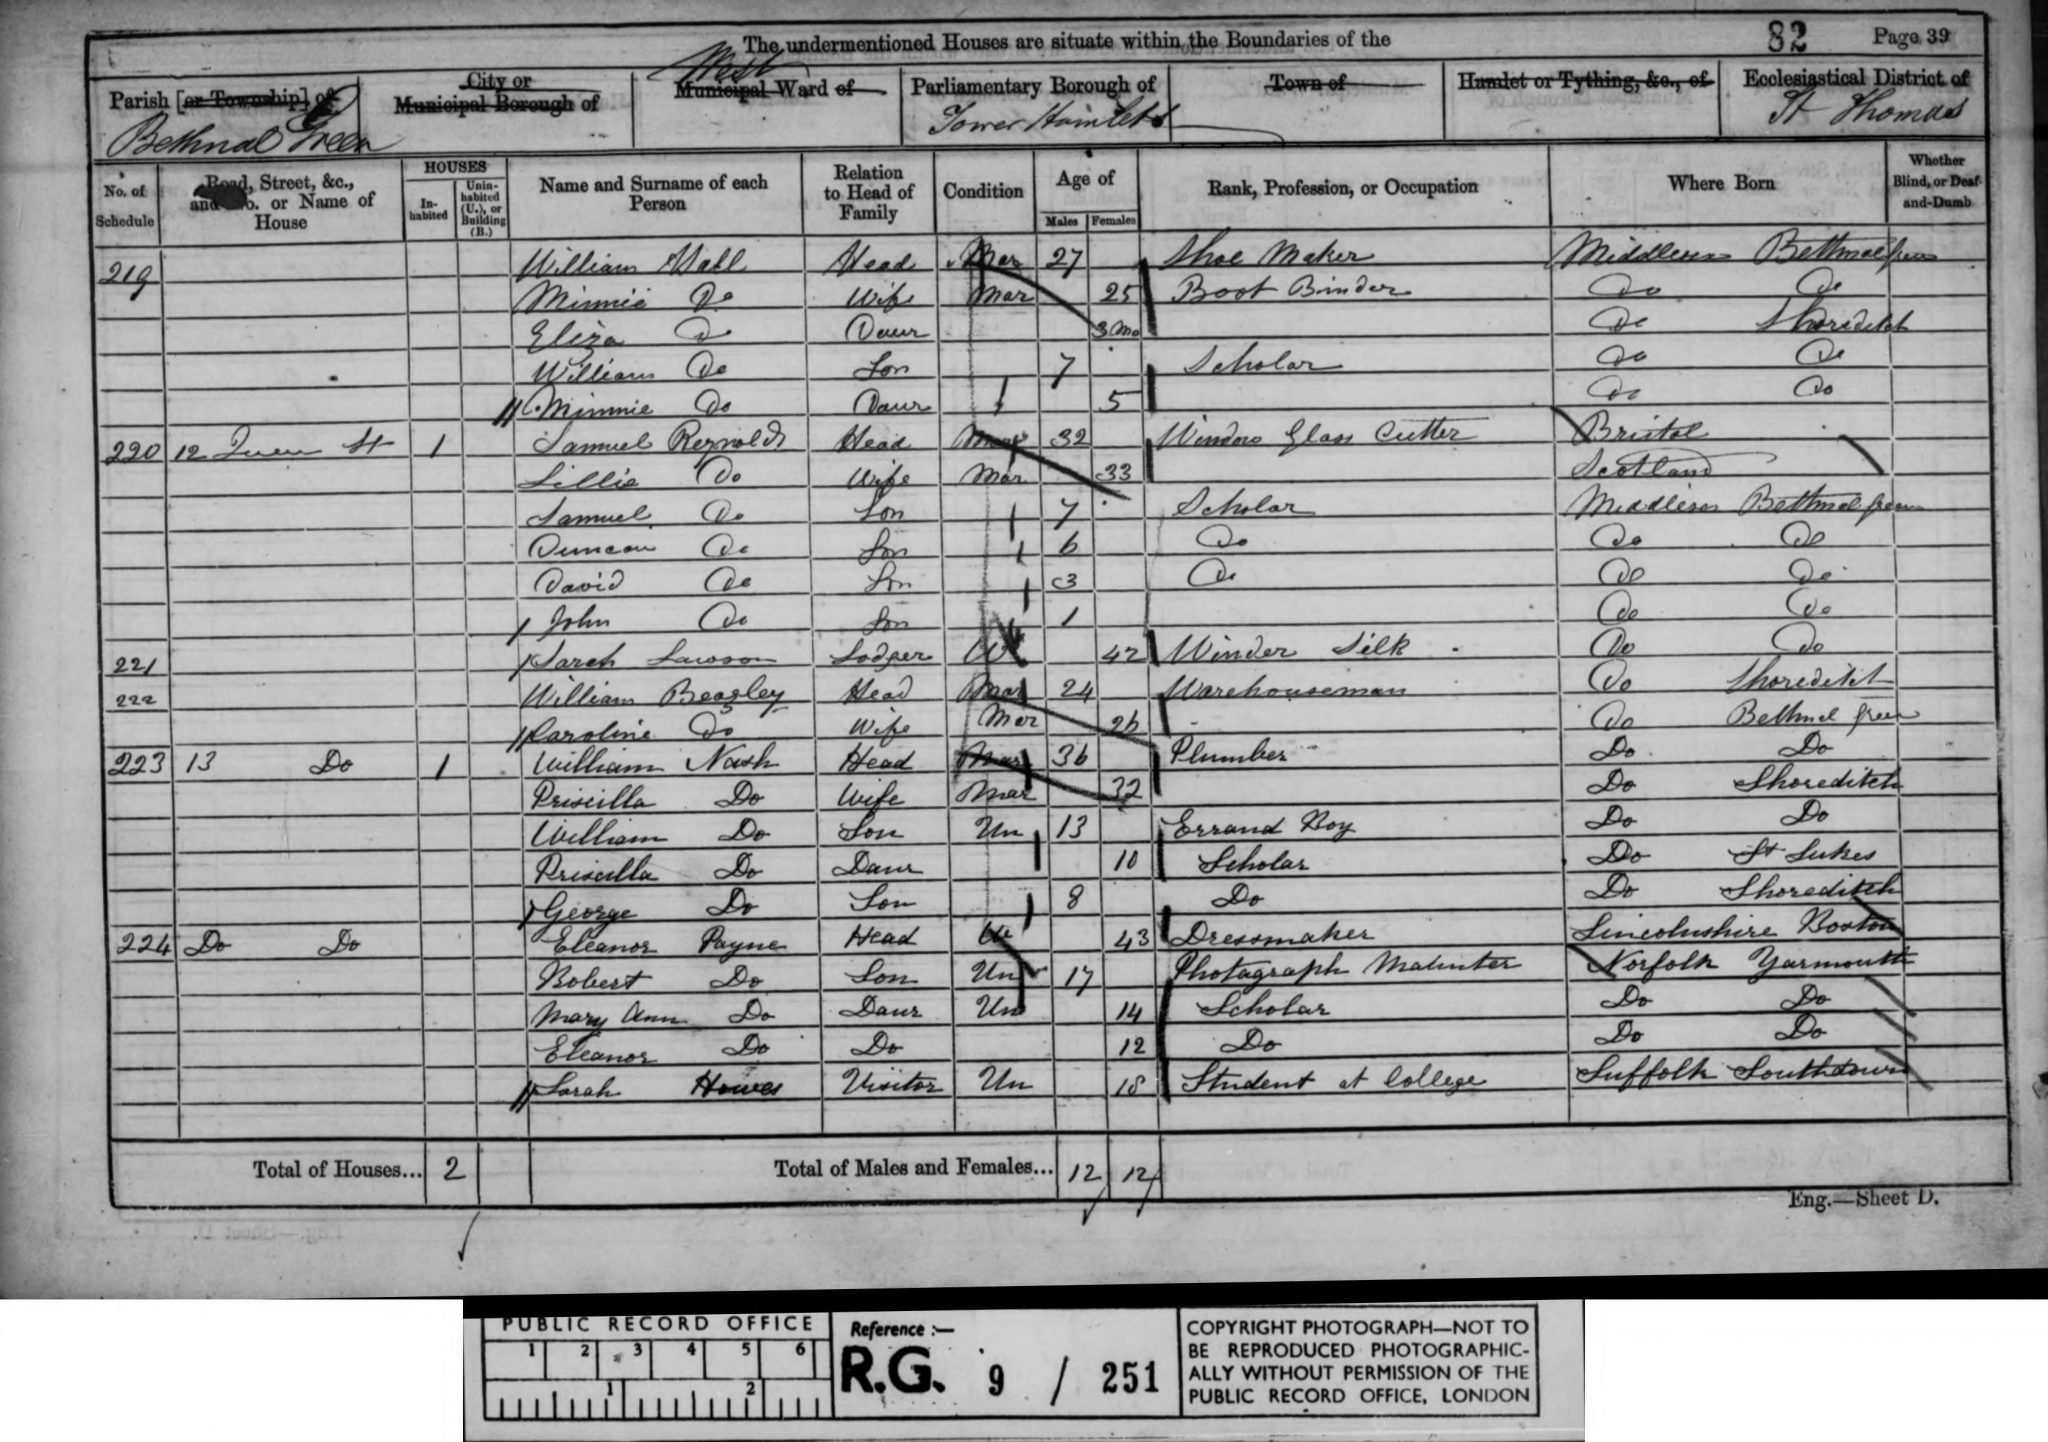 The undermentioned Houses are situate within the Boundaries of the 82 Page 39
Parish [or Township] of Bethnal Green
City or Municipal Borough of
West Municipal Ward of
Parliamentary Borough of Tower Hamlets
Town of
Hamlet or Tything, &c., of
Ecclesiastical District of St Thomas
No. of Schedule
Road, Street, &c., and No. or Name of House
HOUSES
Inhabited
Uninhabited (U.), or Building (B.)
Name and Surname of each Person
Relation to Head of Family
Condition
Age of
Males Females
Rank, Profession, or Occupation
Where Born
Whether Blind, or Deaf-and-Dumb
219 William Hall Head Mar 27 Shoe Maker Middlesex Bethnal green
Minnie Do Wife Mar 25 Boot Binder Do Do
Eliza Do Daur 3 Mo Do Shoreditch
William Do Son 7 Scholar Do Do
Minnie Do Daur 5 Do Do
220 12 Queen St 1 Samuel Reynolds Head Mar 32 Window Glass Cutter Bristol
Lillie Do Wife Mar 33 Scotland
Samuel Do Son 7 Scholar Middlesex Bethnal green
Duncan Do Son 6 Do Do Do
David Do Son 3 Do Do Do
John Do Son 1 Do Do
221 Sarah Lawson Lodger W 42 Winder Silk Do Do
222 William Beasley Head Mar 24 Warehouseman Do Shoreditch
Caroline Do Wife Mar 26 Do Bethnal green
223 13 Do 1 William Nash Head Mar 36 Plumber Do Do
Priscilla Do Wife Mar 32 Do Shoreditch
William Do Son Un 13 Errand Boy Do Do
Priscilla Do Daur 10 Scholar Do St Lukes
George Do Son 8 Do Do Shoreditch
224 Do Do Eleanor Payne Head W 43 Dressmaker Lincolnshire Boston
Robert Do Son Un 17 Photograph Norfolk Yarmouth
Mary Ann Do Daur Un 14 Scholar Do Do
Eleanor Do Do 12 Do Do Do
Sarah Howes Visitor Un 18 Student at College Suffolk Southdown
Total of Houses... 2 Total of Males and Females... 12 12
Eng.—Sheet D.
PUBLIC RECORD OFFICE
1 2 3 4 5 6
1 2
Reference :—
R.G. 9 / 251
COPYRIGHT PHOTOGRAPH—NOT TO
BE REPRODUCED PHOTOGRAPHIC-
ALLY WITHOUT PERMISSION OF THE
PUBLIC RECORD OFFICE, LONDON